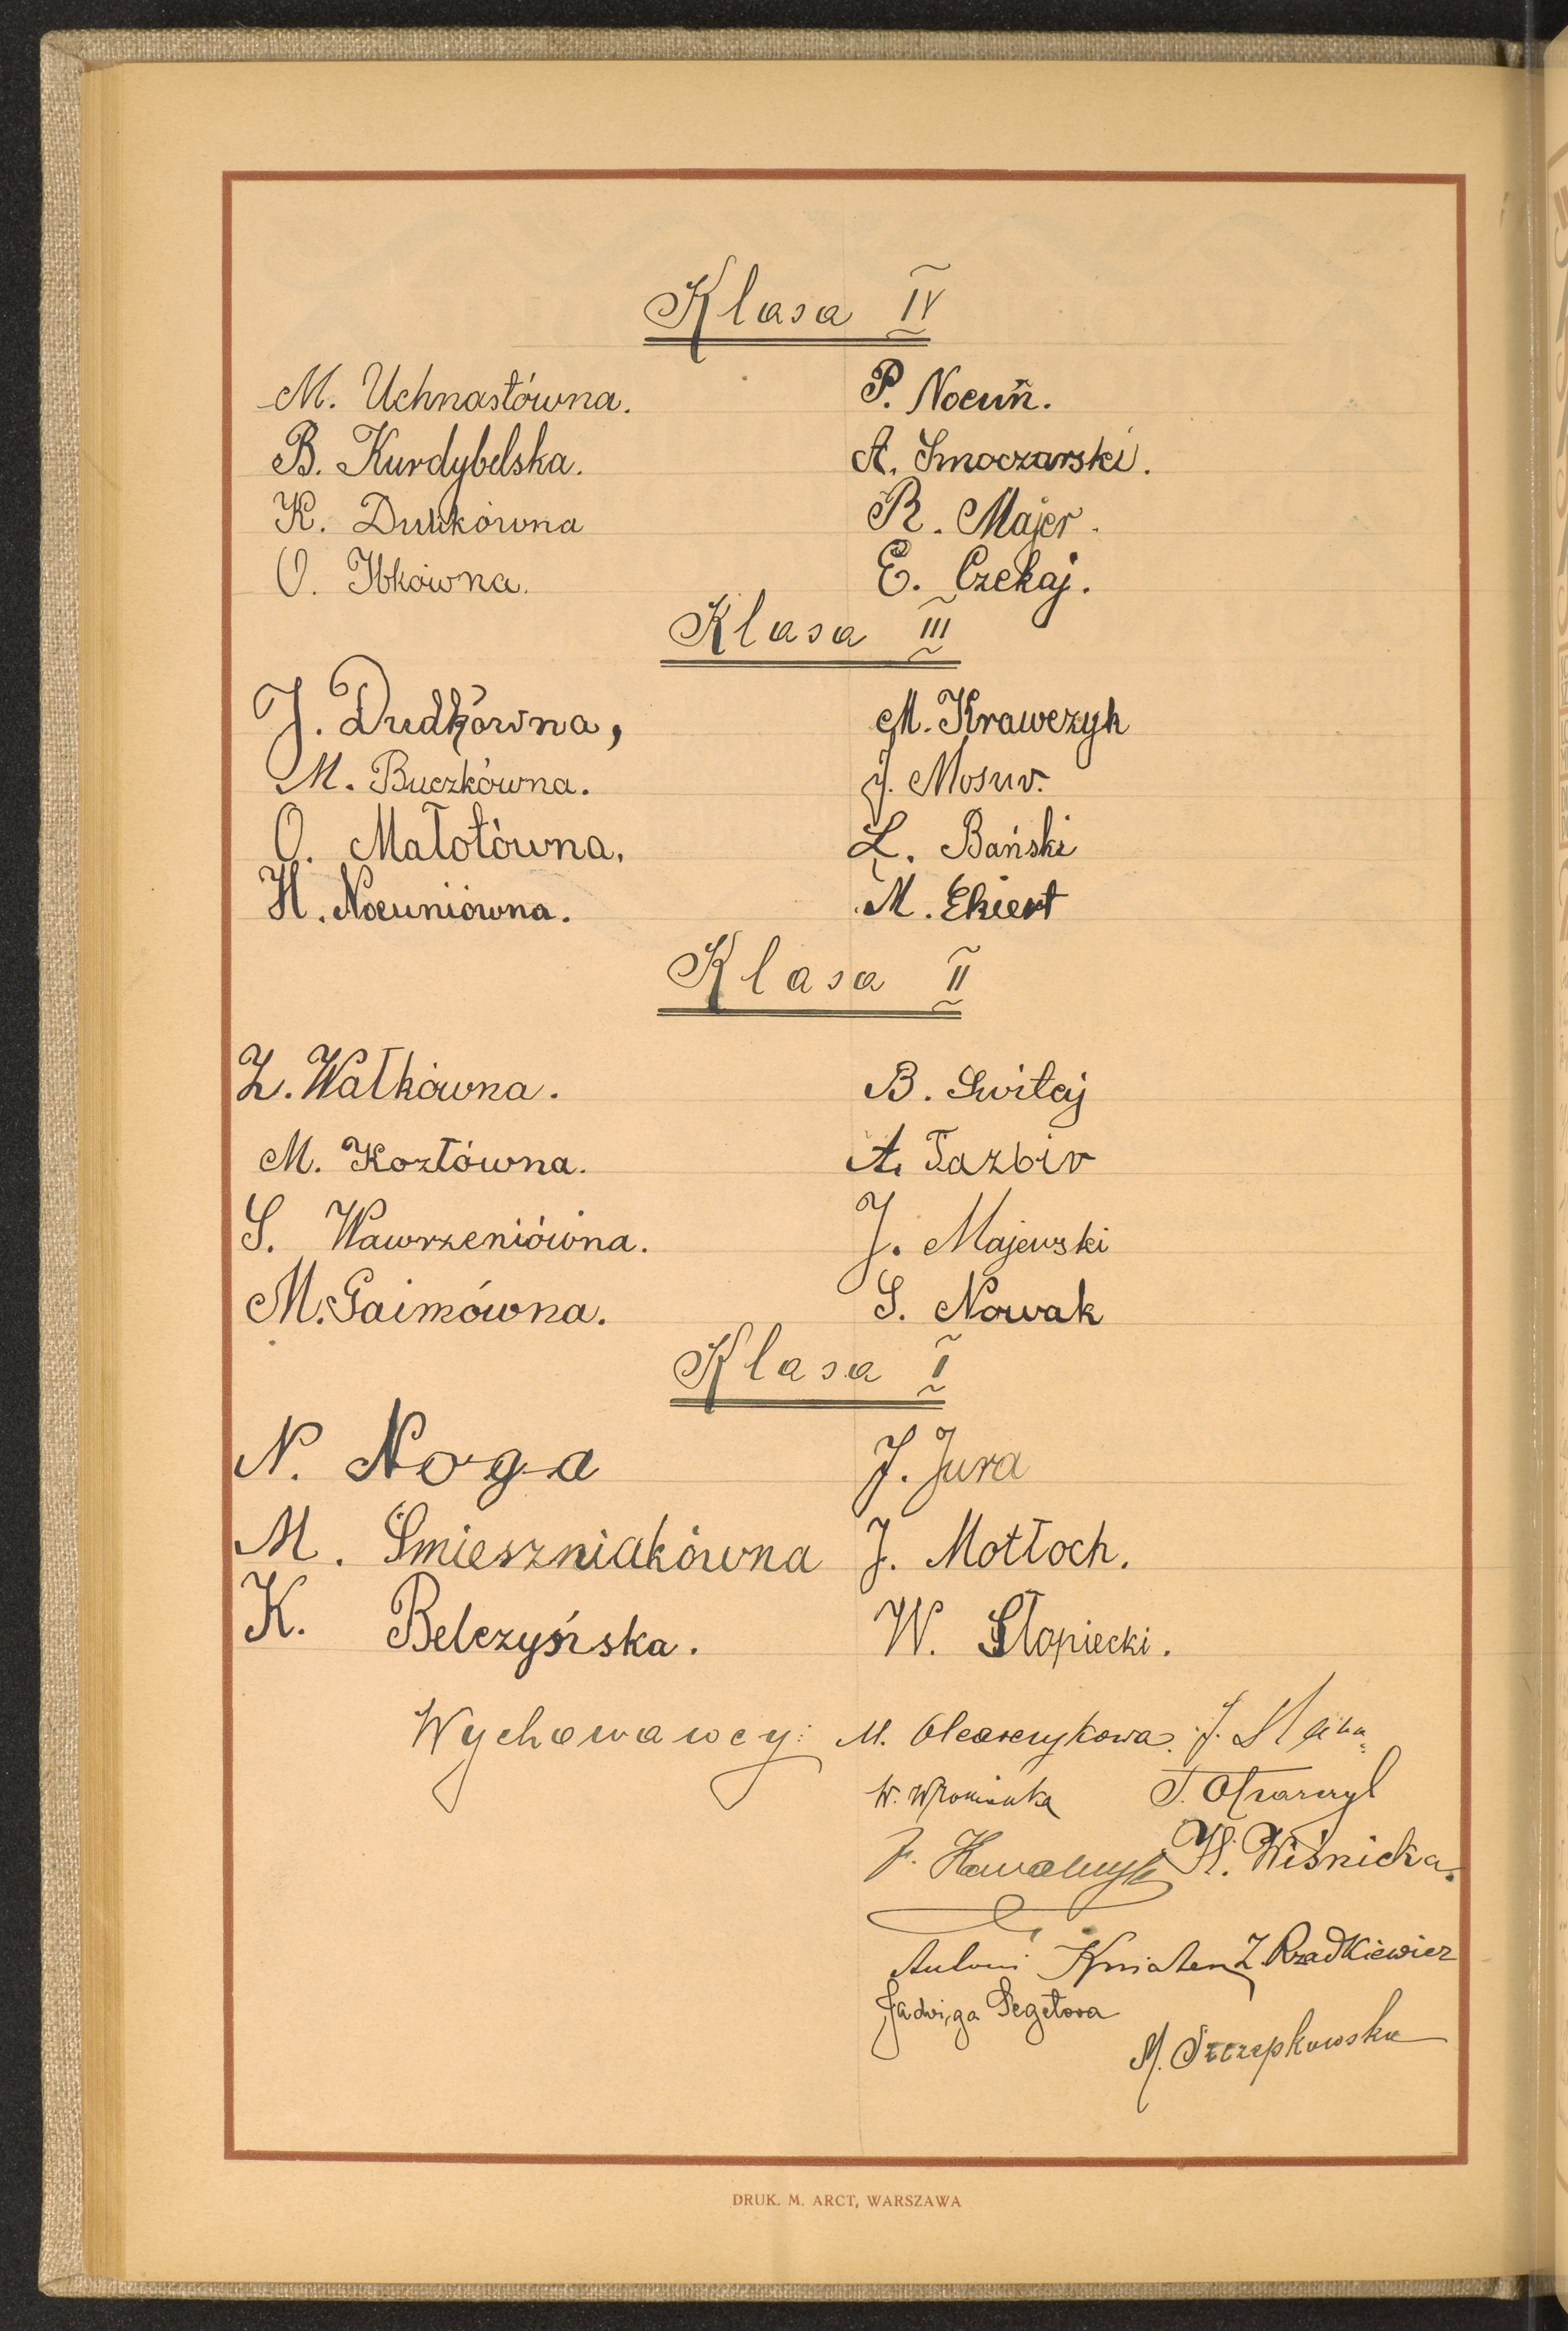 Klasa IV
M. Uchnastówna. P. Nocuń.
B. Kurdybelska. A. Smoczarski.
K. Dulikówna R. Majer.
O. Ibkówna. E. Czekaj.
Klasa III
J. Dudkówna, M. Krawczyk
M. Buczkówna. J. Mosur.
O. Małotówna. L. Bański
H. Nocuniówna. M. Ekiert
Klasa II
Z. Wałkówna. B. Switaj
A. Tazbir
M. Kozłówna.
S. Wawrzeniówna. J. Majewski
M. Gaimówna. S. Nowak
Klasa I
N. Noga J. Jura
M. Smieszniakówna J. Motłoch.
K. Belczyńska. W. Słopiecki.
Wychowawcy: M. Olearczykowa. J.
W. T.
J. Kowalczyk H. Wiśnicka.
Antoni Z. Rzadkiewicz
Jadwiga Segetowa
M. Szczepkowska
DRUK. M. ARCT, WARSZAWA